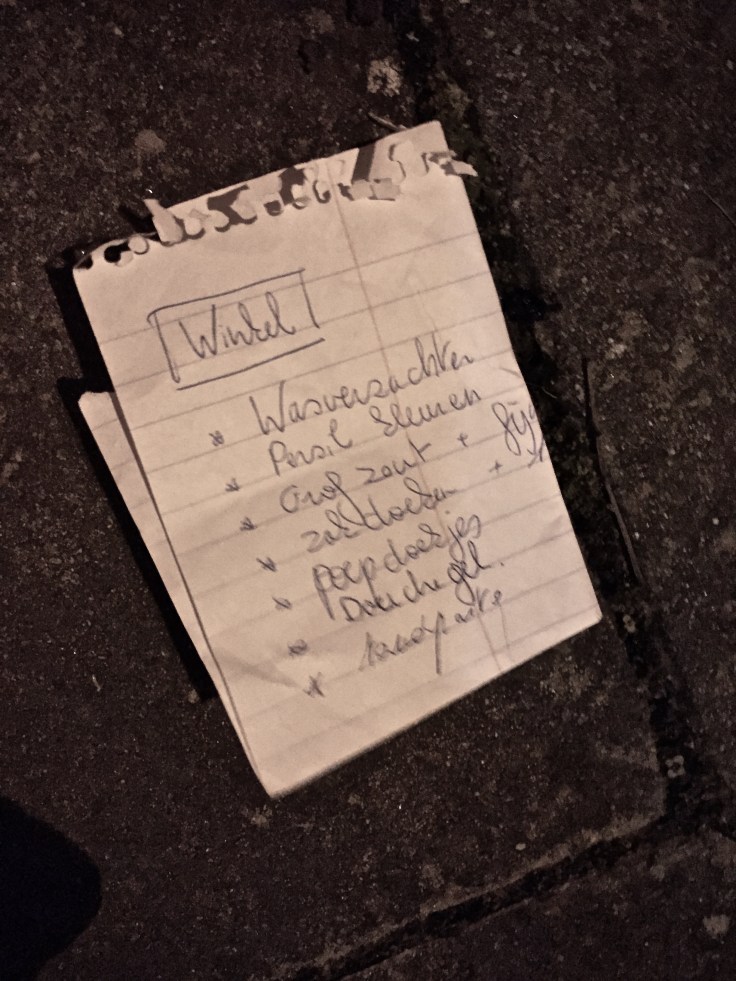 Winkel
* Wasverzachter
* Persil kleuren
* Grof zout + fijn
* zakdoeken +
* poepdoekjes
* Douchegel.
* tandpasta